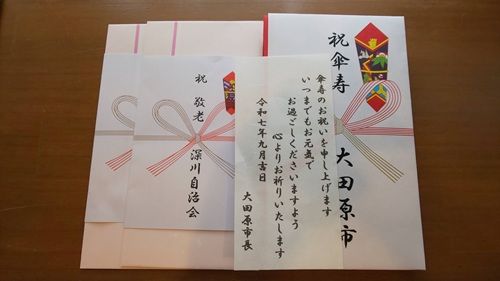 祝傘寿
大田原市
傘寿のお祝いを申し上げます
いつまでもお元気で
お過ごしくださいますよう
心よりお祈りいたします
令和七年九月吉日
大田原市長
祝 敬老
深川自治会